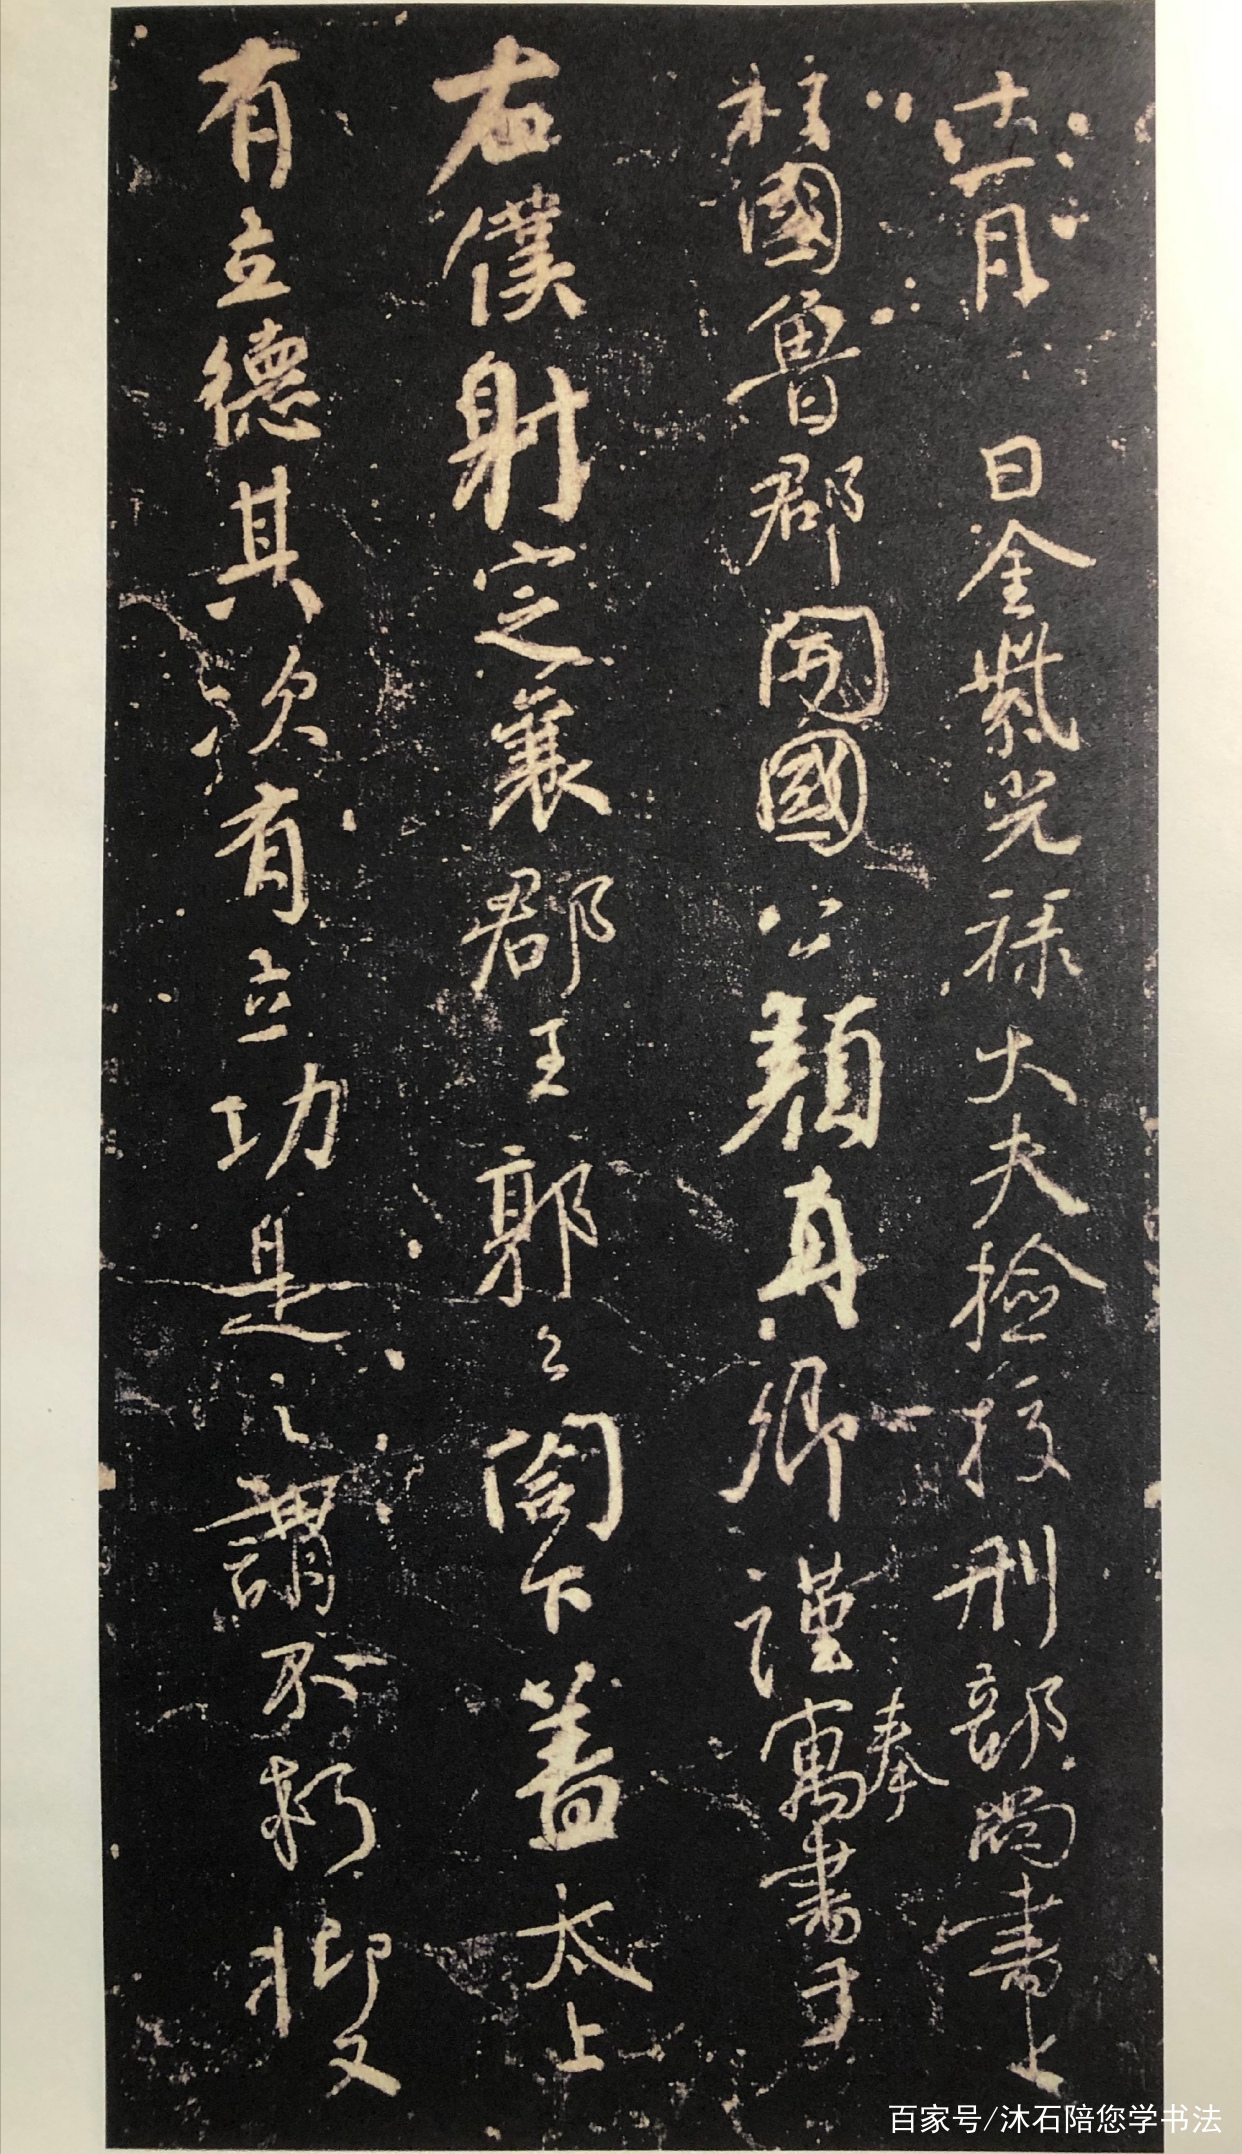 十一月日金紫光祿大夫檢校刑部尚書上
柱國魯郡開國公顏真卿謹奉寓書于
右僕射定襄郡王郭公閤下蓋太上
有立德其次有立功是之謂不朽抑又
百家号/沐石陪您学书法